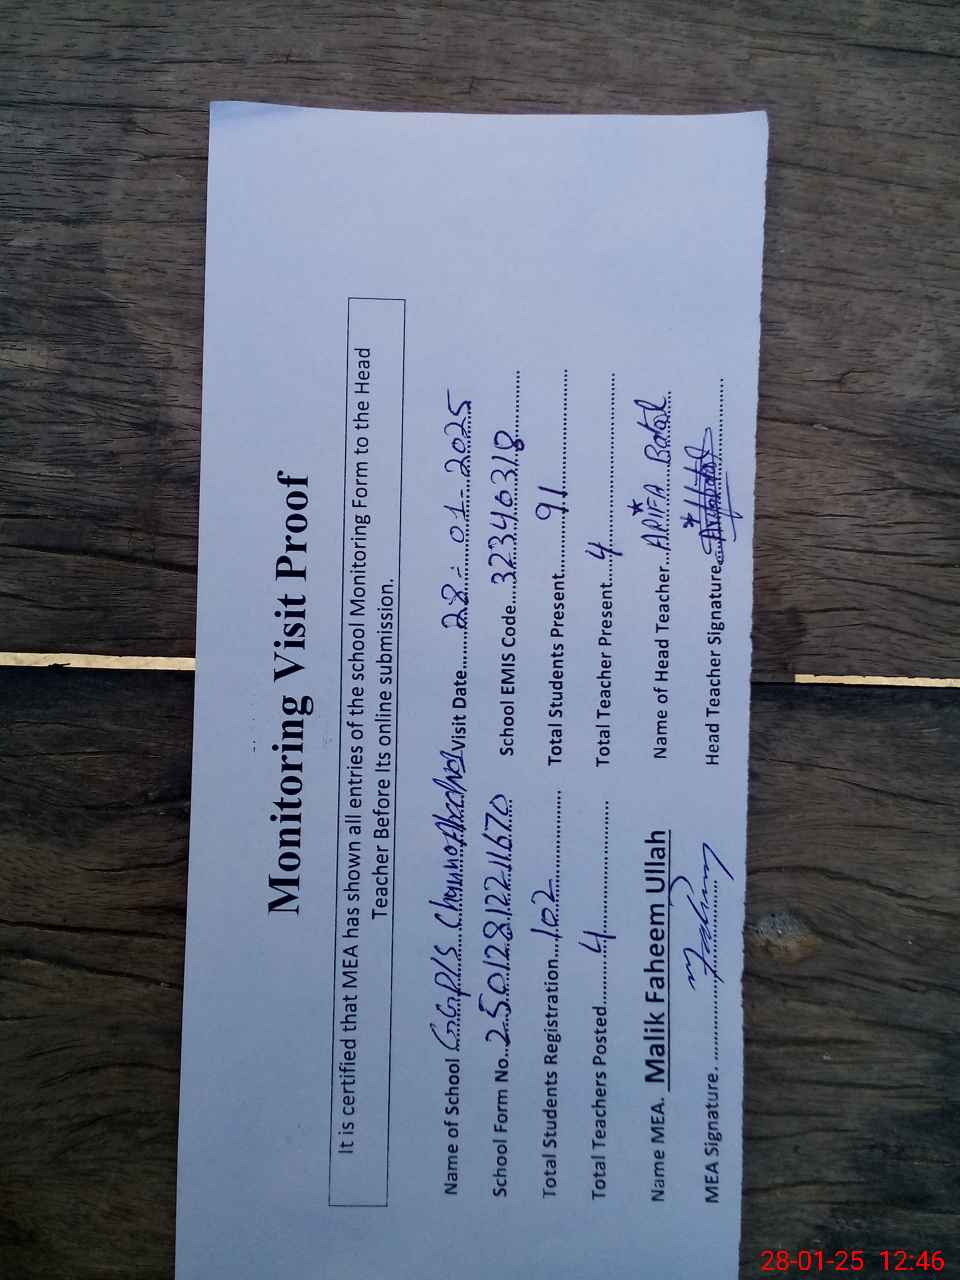 Monitoring Visit Proof
It is certified that MEA has shown all entries of the school Monitoring Form to the Head
Teacher Before Its online submission.
Name of School GGPS Visit Date 28-01-2025
School Form No. 25012812211670 School EMIS Code 32346318
Total Students Registration 102 Total Students Present 91
Total Teachers Posted 4 Total Teacher Present 4
Name MEA. Malik Faheem Ullah Name of Head Teacher ARIFA Batol
MEA Signature. Head Teacher Signature
28-01-25 12:46